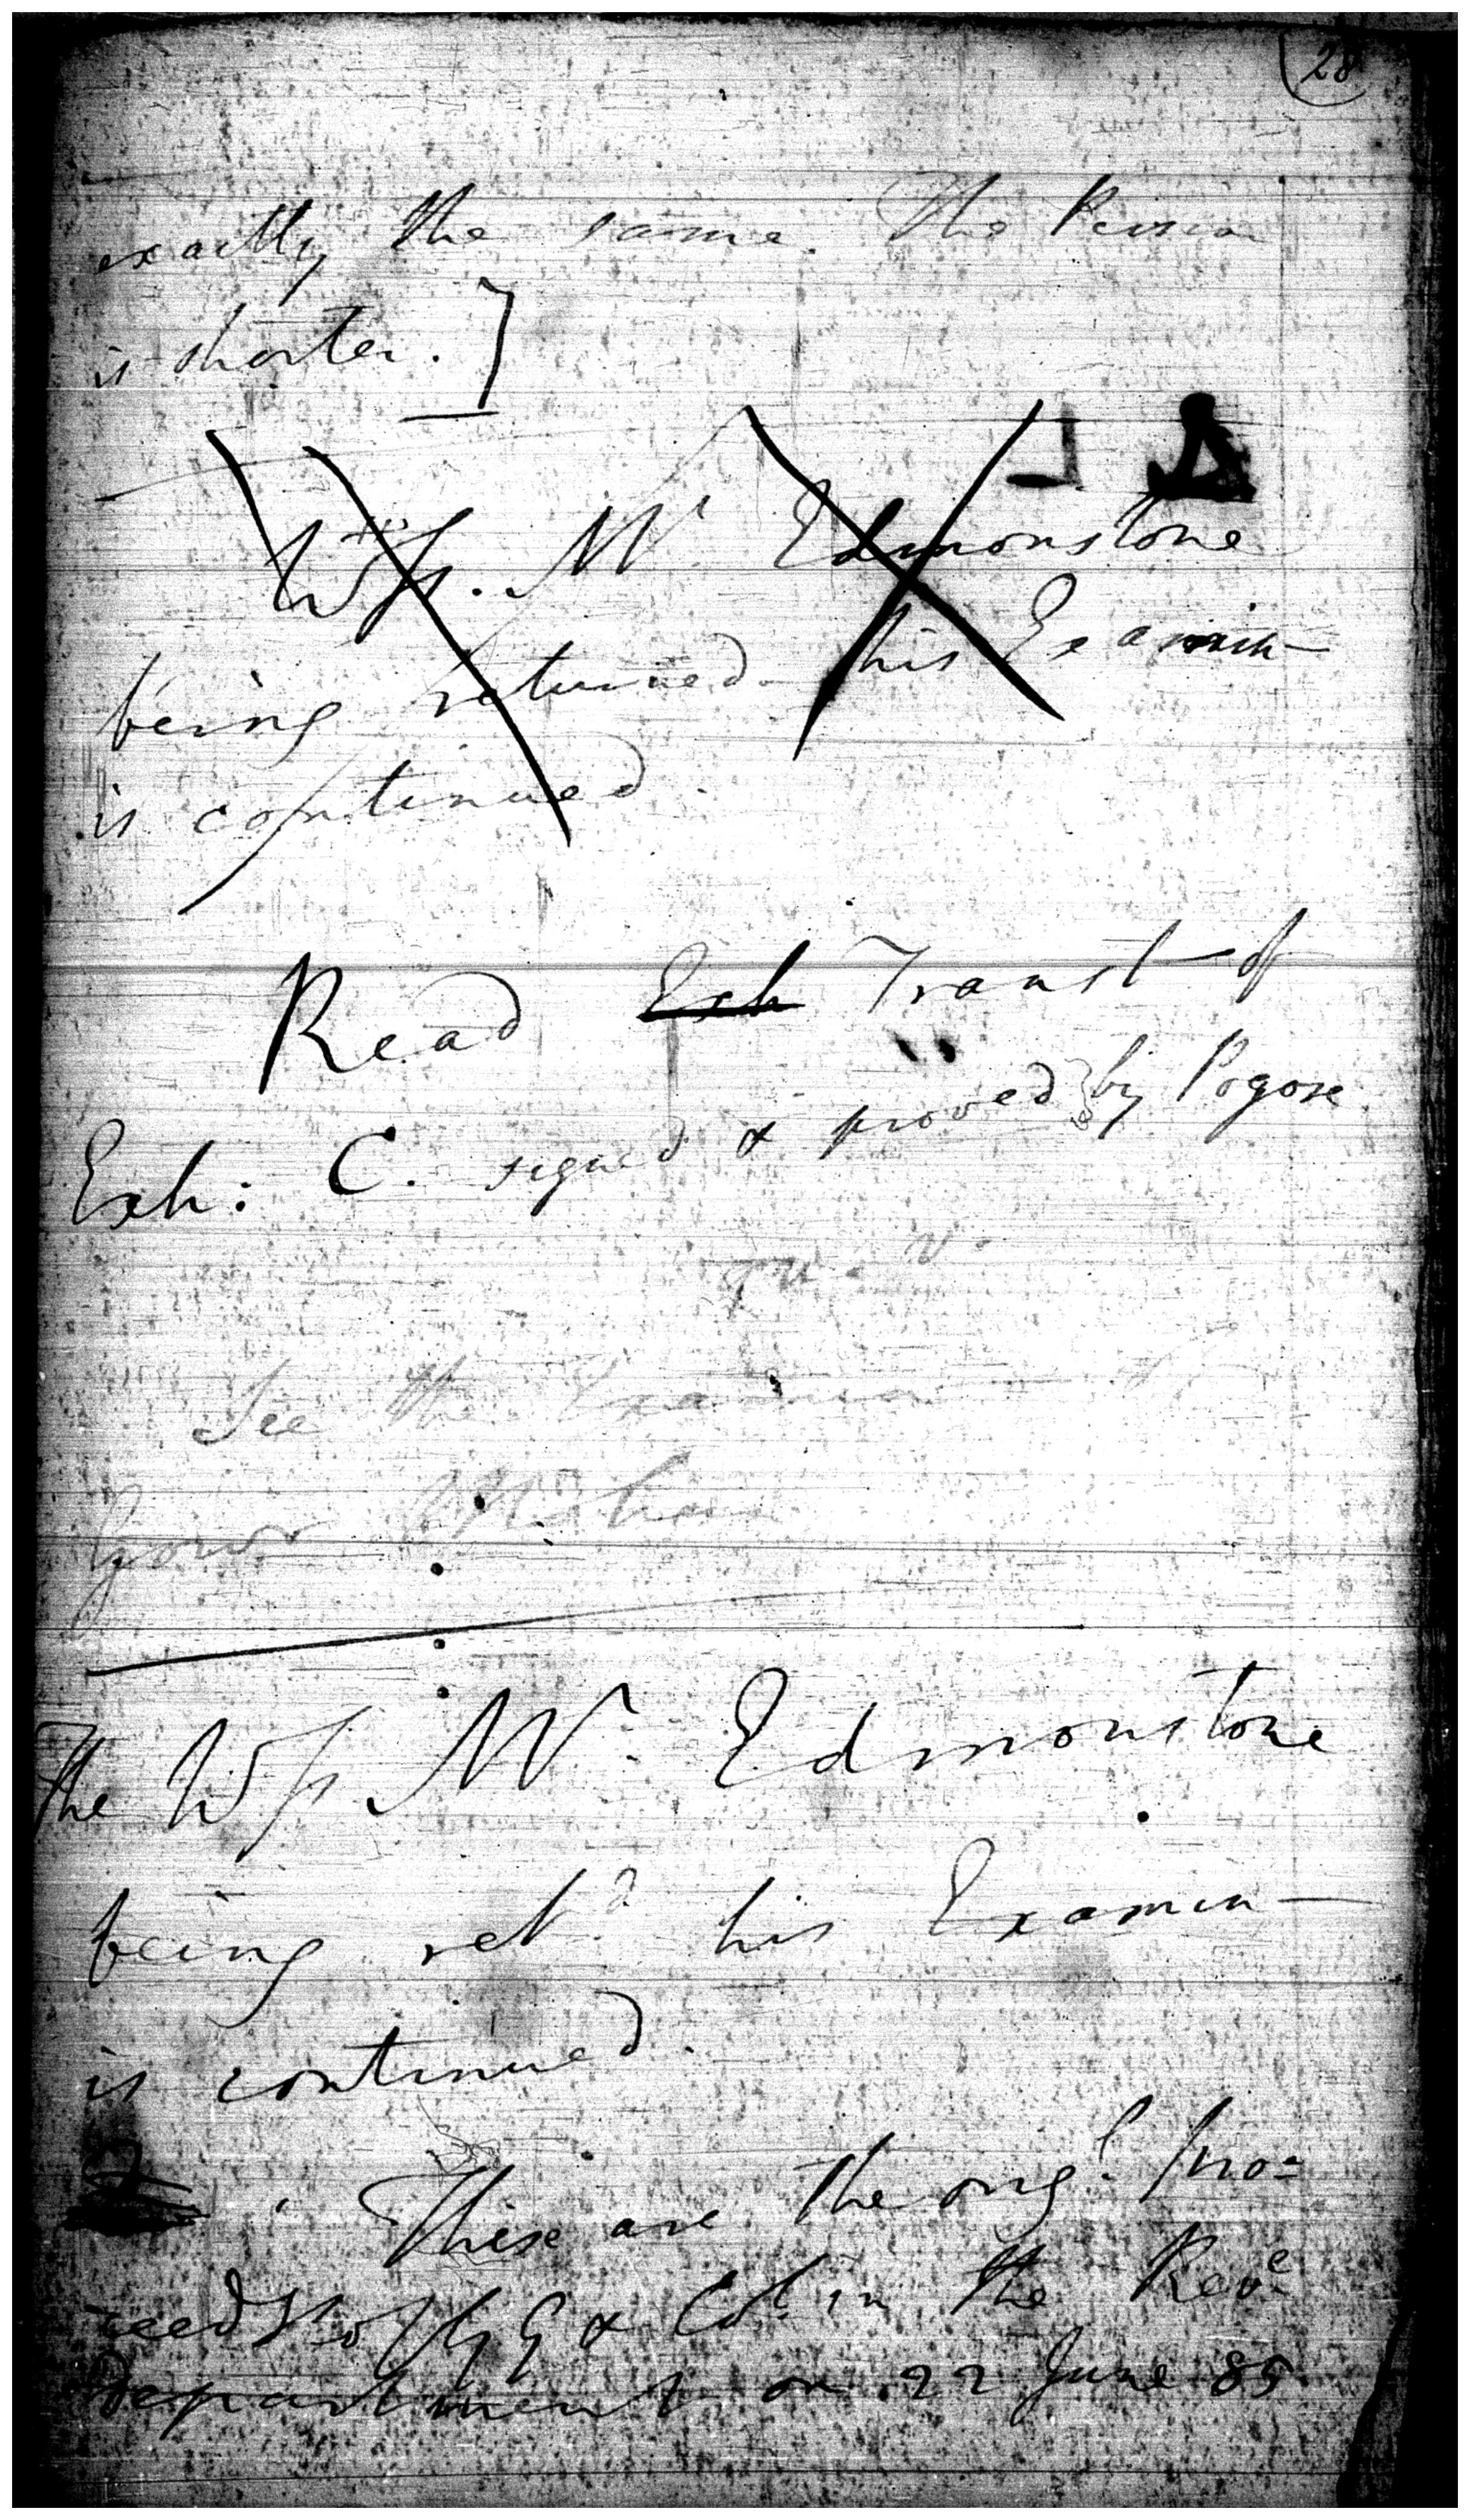 28
exactly the same. The Persian
is shorter. ]
Wp. Mr. Edmonstone
being returned his Examin
is continued.
Read Exh Transl of
Exh: C. signed & proved by Pogose
See the Examn
The Wp. Mr. Edmonstone
being retd his Examin
is continued.
These are the origl pro=
ceedgs of GG & Col in the Reve
department on 22 June 85